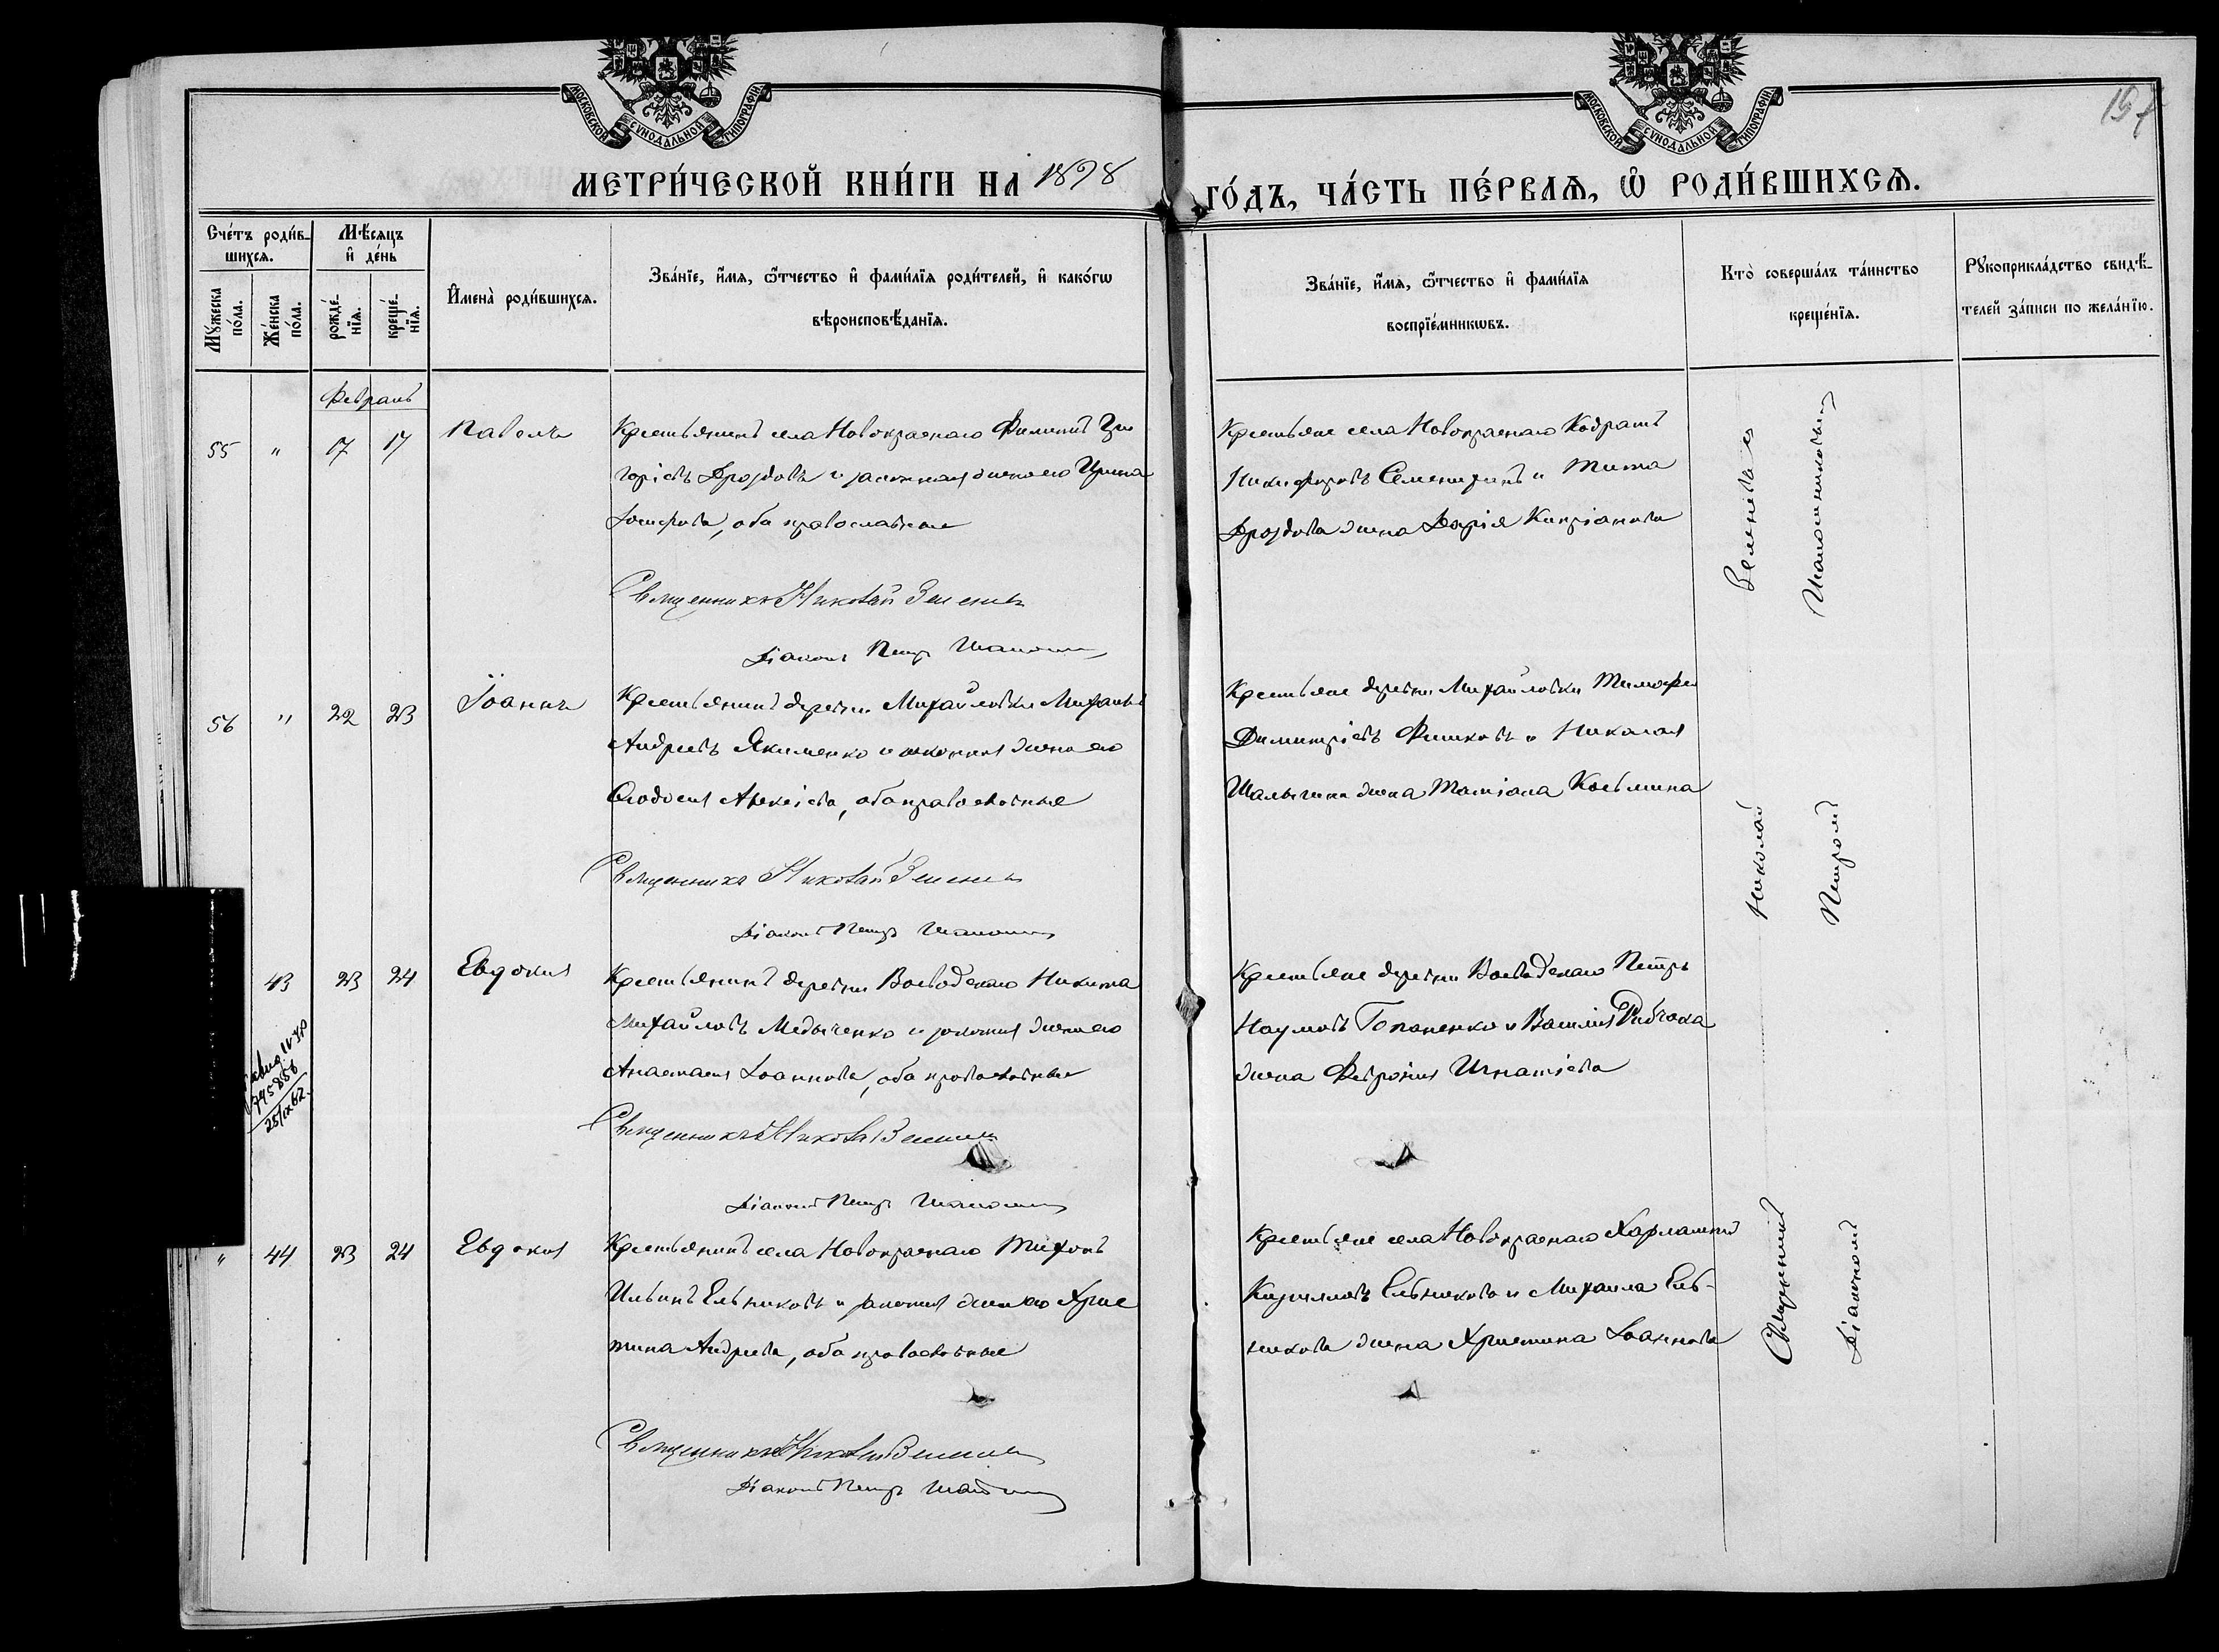 МОСКОВСКОЙ СѴНОДАЛЬНОЙ ТИПОГРАФІИ
МОСКОВСКОЙ СѴНОДАЛЬНОЙ ТИПОГРАФІИ
МЕТРИ́ЧЕСКОЙ КНИ́ГИ НА 1898
ГО́ДЪ, ЧА́СТЬ ПЕ́РВАѦ, Ѡ҆ РОДИ́ВШИХСѦ.
Сче́тъ роди́в-
шихсѧ.
Мꙋ́жеска
по́ла.
Же́нска
по́ла.
Мѣ́сѧцъ
и҆ де́нь
рожде́-
нїѧ.
креще́-
нїѧ.
И҆мена̀ роди́вшихсѧ.
Зва́нїе, и҆́мѧ, ѻ҆́тчество и҆ фами́лїѧ роди́телей, и҆ како́гѡ
вѣроисповѣ́данїѧ.
Зва́нїе, и҆́мѧ, ѻ҆́тчество и҆ фами́лїѧ
воспрїе́мникѡвъ.
Кто̀ соверша́лъ та́инство
креще́нїѧ.
Рꙋкоприкла́дство свидѣ́-
телей за́писи по жела́нїю.
Февраль
55 " 17 17 Павелъ
Крестьянинъ села Новокраснаго Филиппъ Гри
горіевъ Дроздовъ и законная жена его Ирина
Іосифова, оба православные
Священникъ Николай
Діаконъ Петръ
Крестьяне села Новокраснаго Кодратъ
Никифоровъ и Тита
Дроздова жена Дарія Кипріанова
56 " 22 23 Іоаннъ
Крестьянинъ деревни Михайловки Михаилъ
Андреевъ Якименко и законная жена его
Ѳеодосія Алексіева, оба православные
Священникъ Николай
Діаконъ Петръ
Крестьяне деревни Михайловки Тимофей
Димитріевъ и Николая
жена Татіана Косьмина
43 23 24 Евдокія
Крестьянинъ деревни Воеводскаго Никита
Михайловъ Медыченко и законная жена его
Анастасія Іоаннова, оба православные
Священникъ Николай
Діаконъ Петръ
Крестьяне деревни Воеводскаго Петръ
Наумовъ и Василія
жена Февронія Игнатіева
" 44 23 24 Евдокія
Крестьянинъ села Новокраснаго Тихонъ
Ильинъ Ельниковъ и законная жена его Хрис
тина Андреева, оба православные
Священникъ Николай
Діаконъ Петръ
Крестьяне села Новокраснаго Харлампій
Кирилловъ Ельниковъ и Михаила Ель-
никова жена Христина Іоаннова
Священникъ Николай
Діакономъ Петромъ